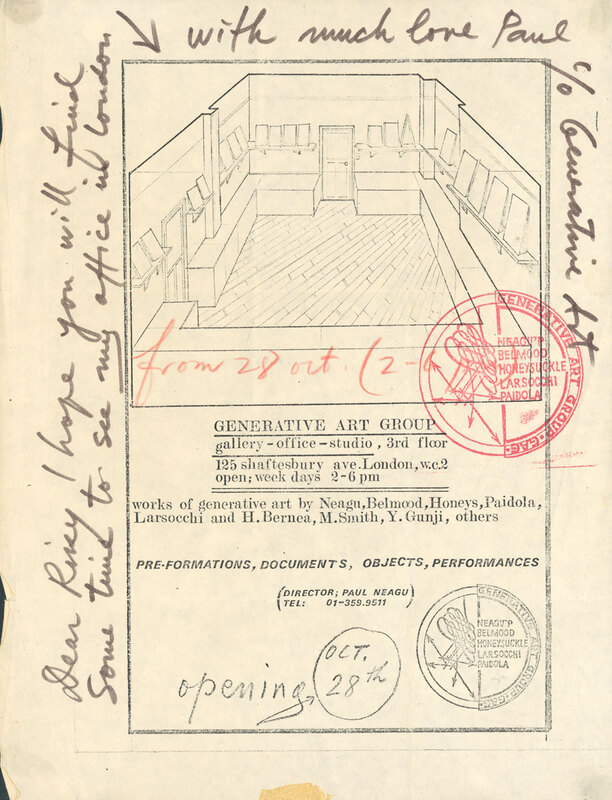 with much love Paul
c/o Generative Art
Dear I hope you will find
some time to see my office in London
from 28 oct. (2-6
GENERATIVE ART GROUP·GAG·
NEAGU'P
BELMOOD
HONEYSUCKLE
LARSOCCHI
PAIDOLA
GENERATIVE ART GROUP
gallery-office-studio, 3rd floor
125 shaftesbury ave.London,w.c.2
open; week days 2-6 pm
works of generative art by Neagu,Belmood,Honeys,Paidola,
Larsocchi and H. Bernea, M.Smith, Y. Gunji, others
PRE-FORMATIONS, DOCUMENTS, OBJECTS, PERFORMANCES
(DIRECTOR; PAUL NEAGU)
(TEL: 01-359.9511)
opening OCT.
28th
GENERATIVE ART GROUP·GAG·
NEAGU'P
BELMOOD
HONEYSUCKLE
LARSOCCHI
PAIDOLA